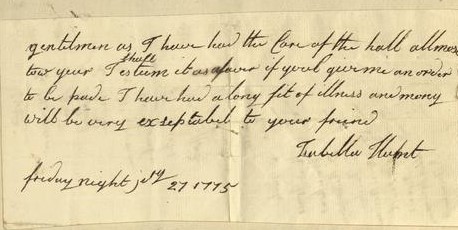 gentelmen as I have had the Care of the hall allmos
tow year I shall estium it as a favor if youl give me an order
to be pade I have had a long fit of illness and mony
will be very exseptabel to your friend
Isabella Hunt
friday night july 27 1775